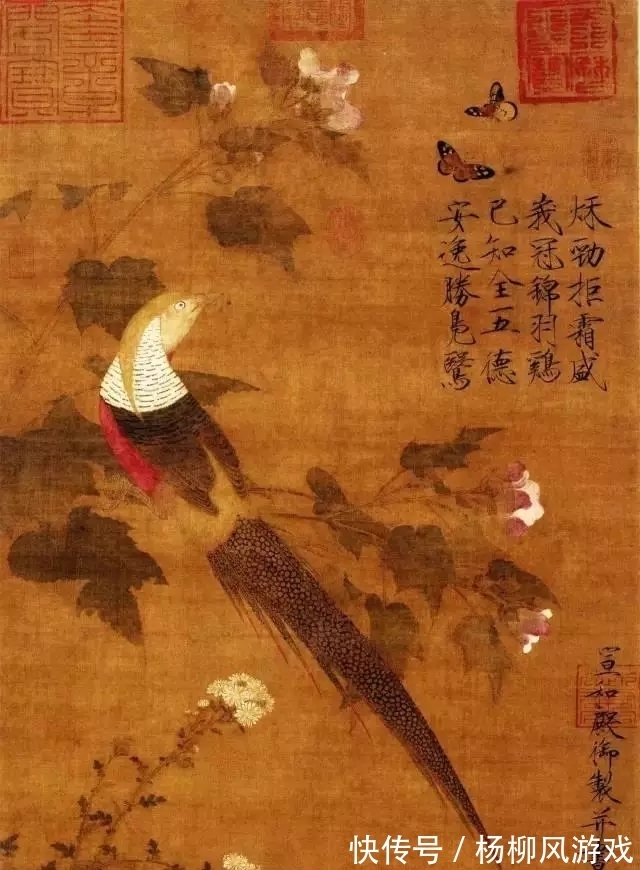 秋勁拒霜盛
峩冠錦羽鷄
已知全五德
安逸勝鳧鷖
宣和殿御製并書
快传号 / 杨柳风游戏